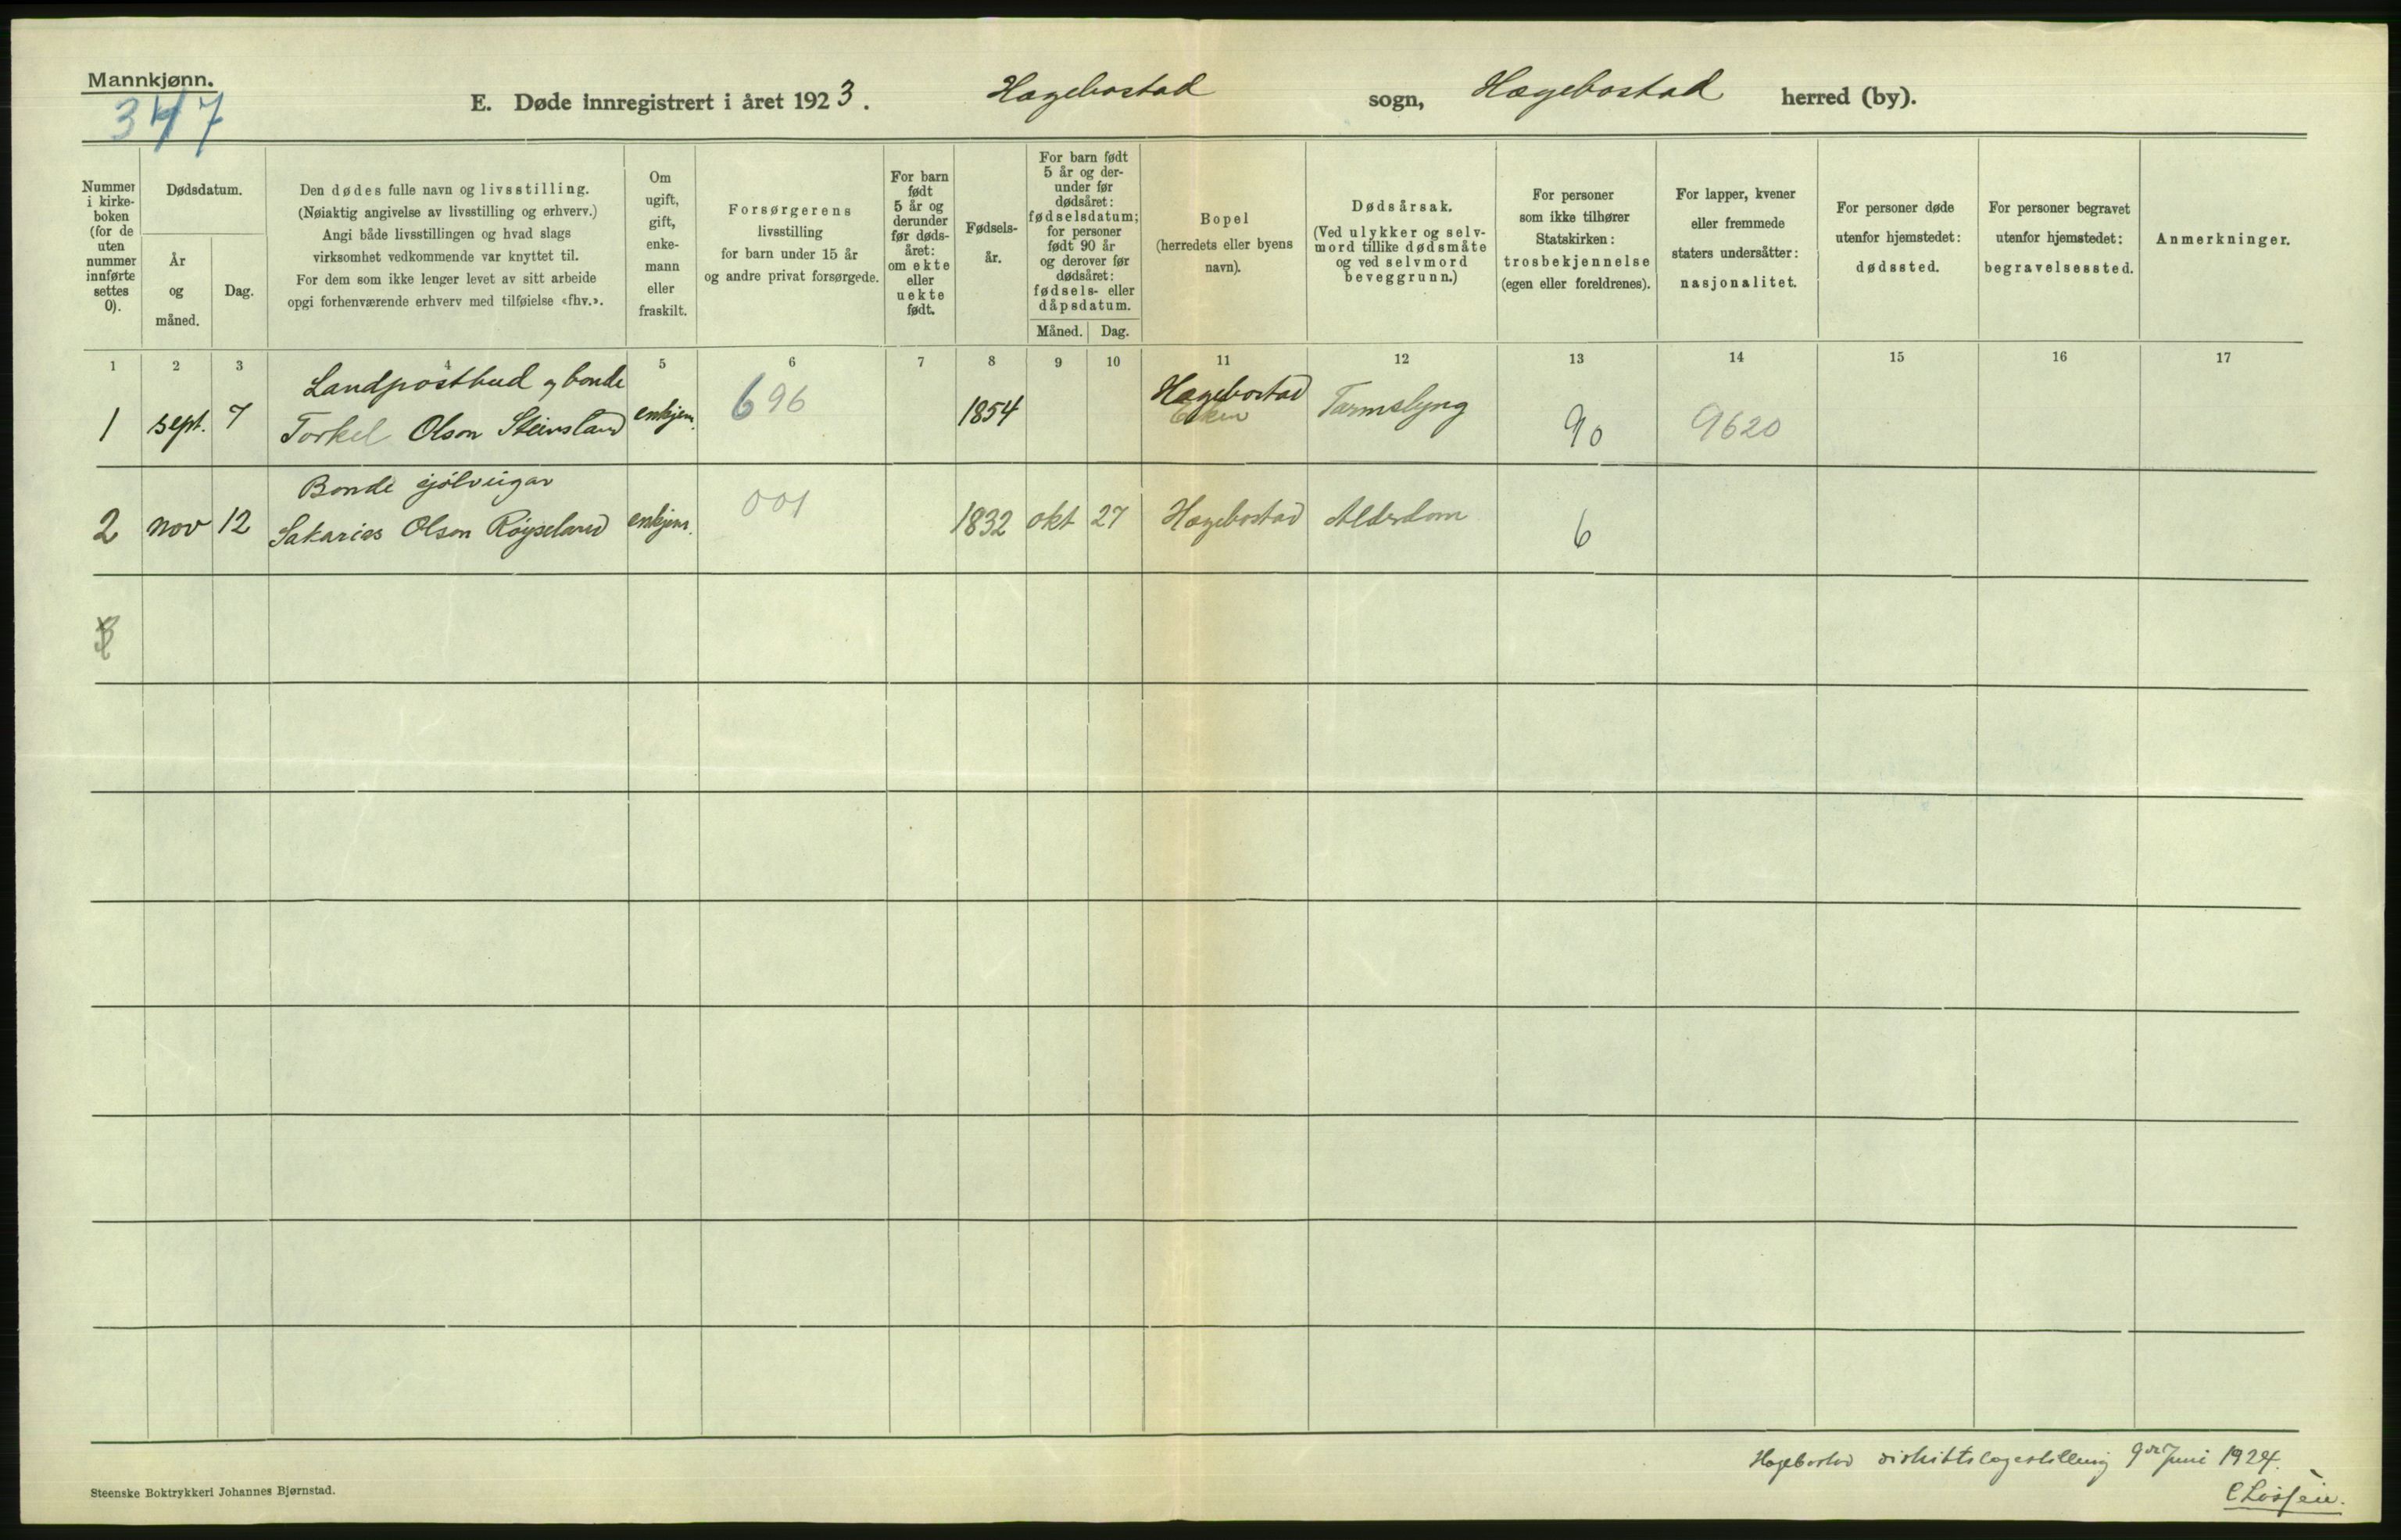 Mannkjønn.
347
E. Døde innregistrert i året 1923. Hægebostad sogn, Hægebostad herred (by).
Nummer i kirke- boken (for de uten nummer innførte settes 0).
Dødsdatum.
År og måned.
Dag.
Den dødes fulle navn og livsstilling.
(Nøiaktig angivelse av livsstilling og erhverv.)
Angi både livsstillingen og hvad slags
virksomhet vedkommende var knyttet til.
For dem som ikke lenger levet av sitt arbeide
opgi forhenværende erhverv med tilføielse «fhv.».
Om ugift, gift, enke- mann eller fraskilt.
Forsørgerens
livsstilling
for barn under 15 år
og andre privat forsørgede.
For barn født 5 år og derunder før døds- året: om ekte eller uekte født.
Fødsels- år.
For barn født 5 år og der- under før dødsåret: fødselsdatum; for personer født 90 år og derover før dødsåret: fødsels- eller dåpsdatum.
Måned. Dag.
Bopel
(herredets eller byens
navn).
Dødsårsak.
(Ved ulykker og selv-
mord tillike dødsmåte
og ved selvmord
beveggrunn.)
For personer
som ikke tilhører
Statskirken:
trosbekjennelse
(egen eller foreldrenes).
For lapper, kvener
eller fremmede
staters undersåtter:
nasjonalitet.
For personer døde
utenfor hjemstedet:
dødssted.
For personer begravet
utenfor hjemstedet:
begravelsessted.
Anmerkninger.
1 2 3 4 5 6 7 8 9 10 11 12 13 14 15 16 17
Landpostbud og bonde Hægebostad
1 sept. 7 Torkel Olson Steinsland enkjem. 696 1854 Tarmslyng 90 9620
Bonde sjølveigar
2 nov 12 Sakarias Olson Røyseland enkjem. 001 1832 okt 27 Hægebostad Alderdom 6
3
Hægebostad distriktslægestilling 9de Juni 1924.
Steenske Boktrykkeri Johannes Bjørnstad.